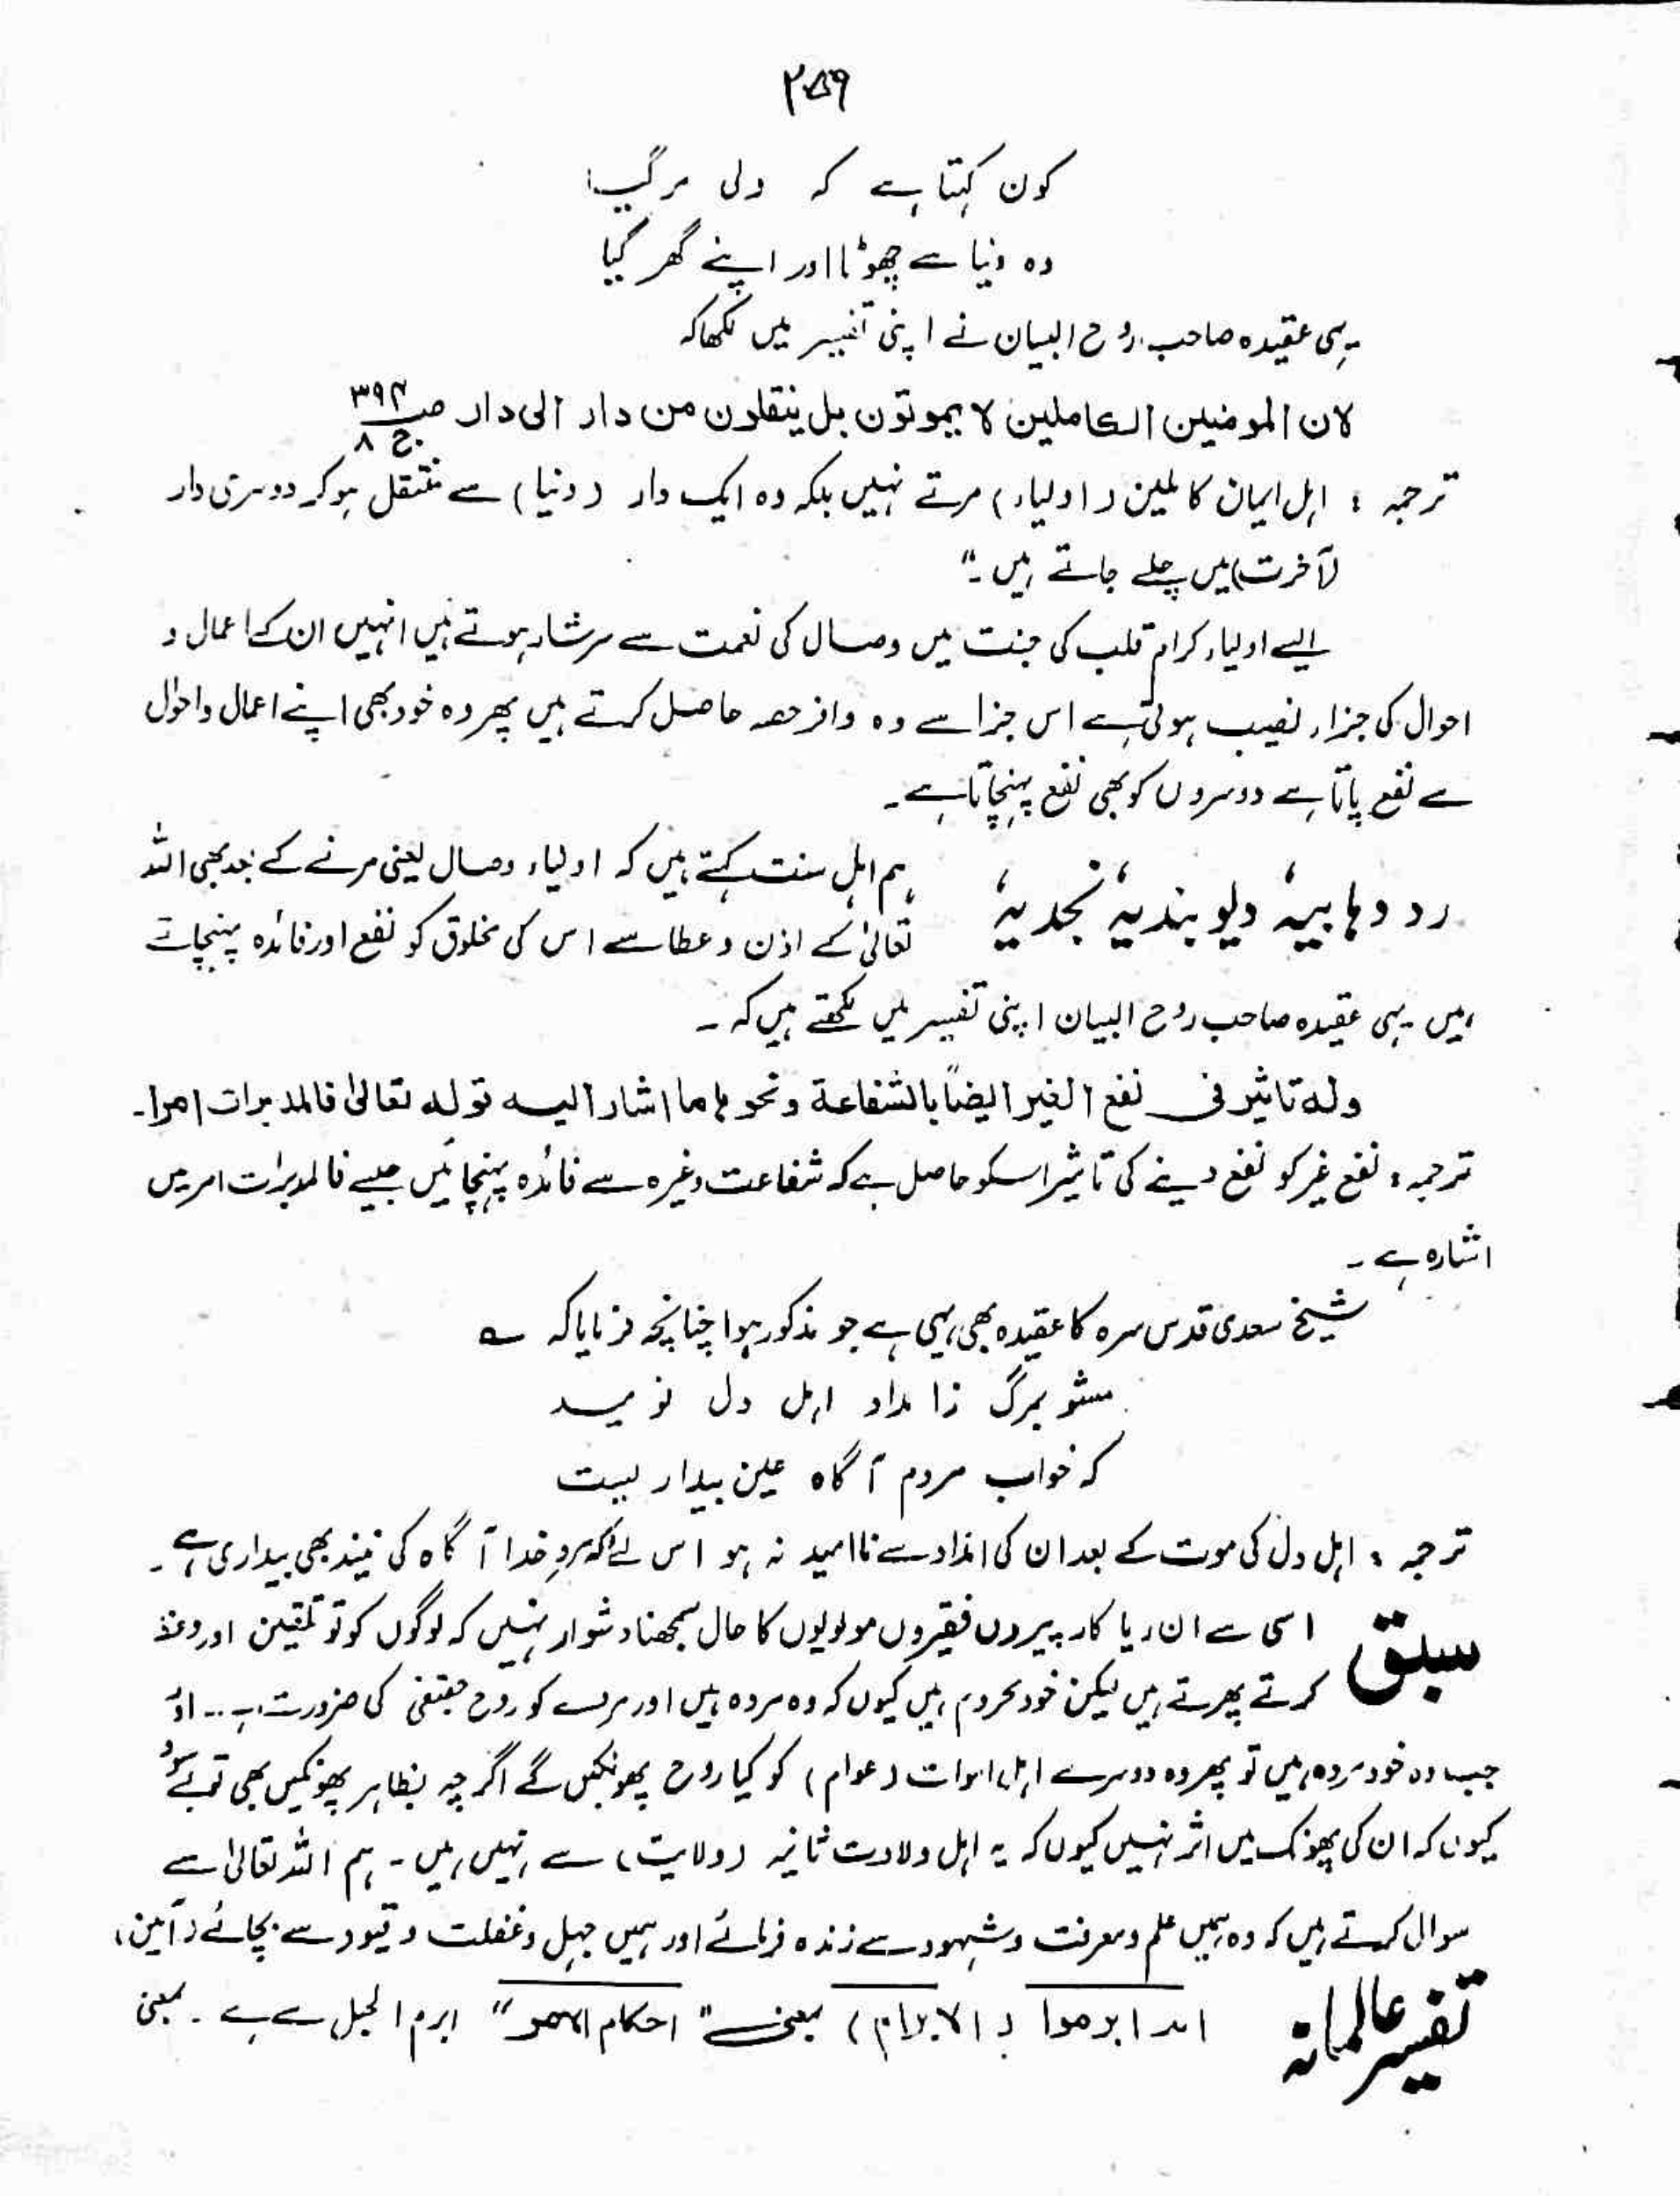 ۲۵۹
کون کہتا ہے کہ ولی مر گیا
وہ دنیا سے چھوٹا اور اپنے گھر گیا
یہی عقیدہ صاحب روح البیان نے اپنی تفسیر میں لکھا کہ
لان المومنین الکاملین لا یموتون بل ینقلون من دار الی دار ص ۳۹۴ ج ۸
ترجمہ : اہل ایمان کاملین (اولیاء) مرتے نہیں بلکہ وہ ایک دار (دنیا) سے منتقل ہو کر دوسری دار
(آخرت) میں چلے جاتے ہیں۔"
ایسے اولیاء کرام قلب کی جنت میں وصال کی نعمت سے سرشار ہوتے ہیں انہیں ان کے اعمال و
احوال کی جزاء نصیب ہوتی ہے اس جزا سے وہ وافر حصہ حاصل کرتے ہیں پھر وہ خود بھی اپنے اعمال و احوال
سے نفع پاتا ہے دوسروں کو بھی نفع پہنچاتا ہے۔
رد وہابیہ، دیوبندیہ، نجدیہ، ہم اہل سنت کہتے ہیں کہ اولیاء وصال یعنی مرنے کے بعد بھی اللہ
تعالیٰ کے اذن و عطا سے اس کی مخلوق کو نفع اور فائدہ پہنچاتے
ہیں۔ یہی عقیدہ صاحب روح البیان اپنی تفسیر میں لکھتے ہیں کہ۔
ولہ تاثیر فی نفع الغیر ایضاً بالشفاعة ونحوہا ما اشار الیہ قولہ تعالیٰ فالمدبرات امرا۔
ترجمہ : نفع غیر کو نفع دینے کی تاثیر اسکو حاصل ہے کہ شفاعت وغیرہ سے فائدہ پہنچائیں جیسے فالمدبرات امر میں
اشارہ ہے۔
شیخ سعدی قدس سرہ کا عقیدہ بھی یہی ہے جو مذکور ہوا چنانچہ فرمایا کہ ؎
مشو بمرگ ز امداد اہل دل نومید
کہ خواب مردم آگاہ عین بیداریست
ترجمہ : اہل دل کی موت کے بعد ان کی امداد سے ناامید نہ ہو اس لئے کہ مردِ خدا آگاہ کی نیند بھی بیداری ہے۔
سبق اسی سے ان ریا کار پیروں فقیروں مولویوں کا حال سمجھنا دشوار نہیں کہ لوگوں کو تو تلقین اور وعظ
کرتے پھرتے ہیں لیکن خود محروم ہیں کیوں کہ وہ مردہ ہیں اور مردے کو روح حقیقی کی ضرورت ہے۔ اور
جب وہ خود مردہ ہیں تو پھر وہ دوسرے اہل اموات (عوام) کو کیا روح پھونکیں گے اگرچہ بظاہر پھونکیں بھی تو بے سود
کیوں کہ ان کی پھونک میں اثر نہیں کیوں کہ یہ اہل ولادت ثانیہ (ولایت) سے نہیں ہیں۔ ہم اللہ تعالیٰ سے
سوال کرتے ہیں کہ وہ ہمیں علم و معرفت و شہود سے زندہ فرمائے اور ہمیں جہل و غفلت و قیود سے بچائے (آمین)
تفسیر عالمانہ ام ابرموا (الابرام) بمعنے "احکام الامر" ابرم الحبل سے ہے۔ بمعنی